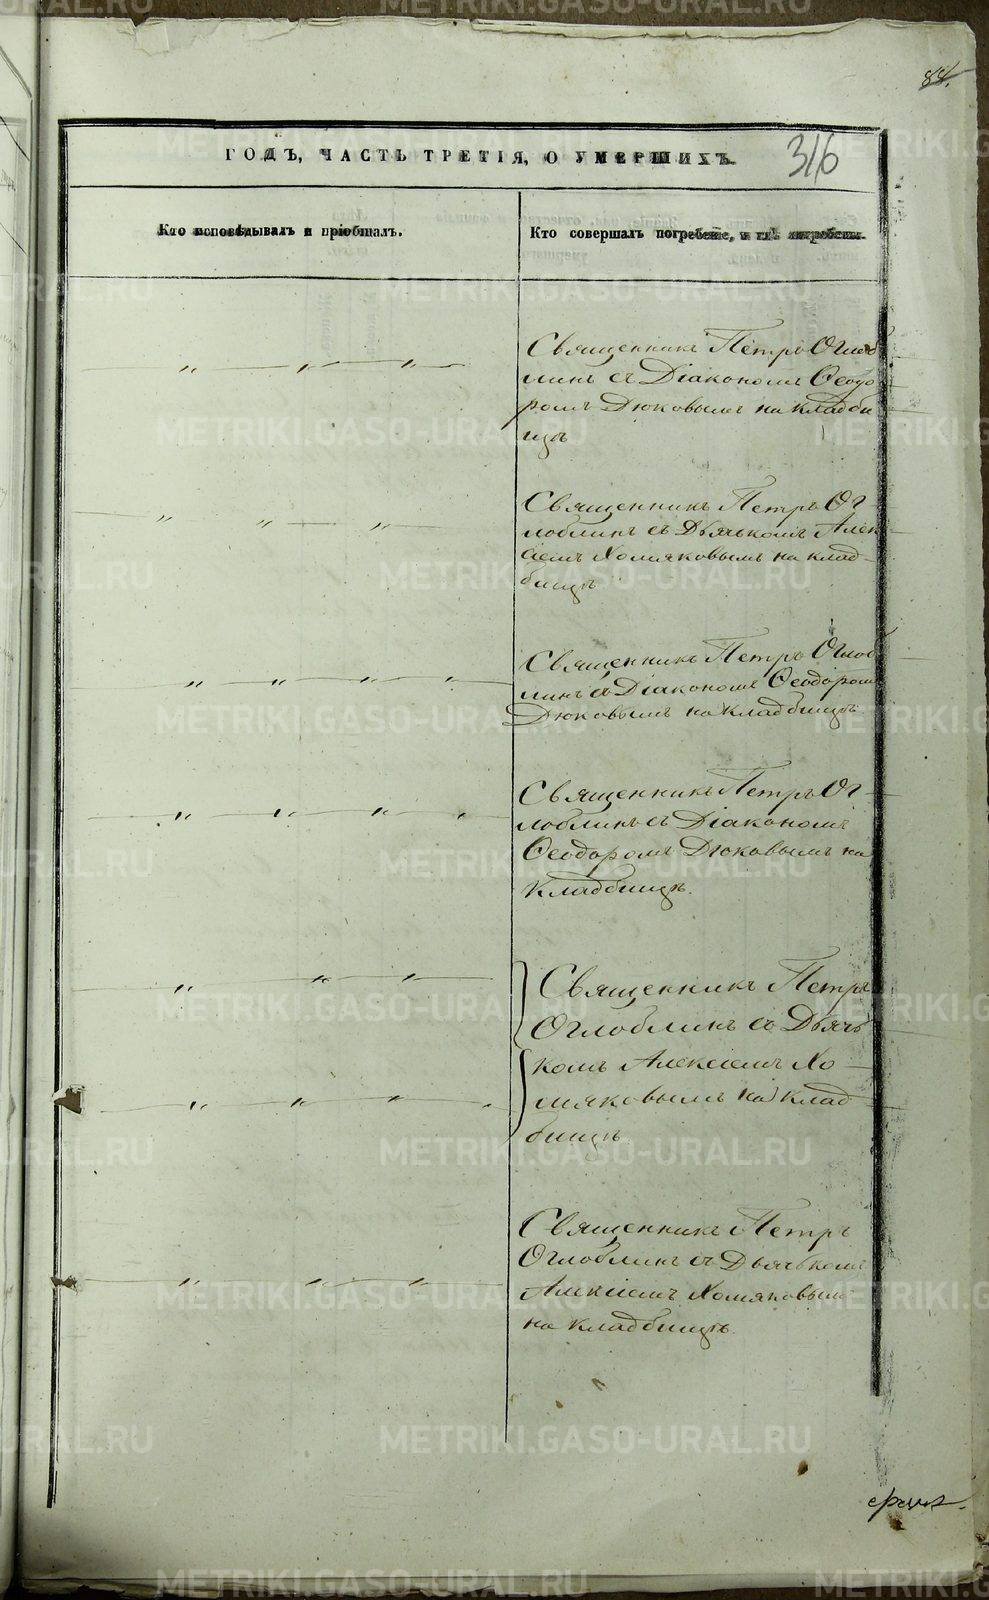 88.
316
ГОДЪ, ЧАСТЬ ТРЕТІЯ, О УМЕРШИХЪ.
Кто исповѣдывалъ и пріобщалъ.
Кто совершалъ погребеніе, и гдѣ погребены.
Священникъ Петръ Оглоб
линъ съ Діакономъ Ѳеодо
ромъ Дюковымъ на кладби
щѣ
Священникъ Петръ Ог-
лоблинъ съ Дьячькомъ Алек
сіемъ Хомяковымъ на клад-
бищѣ
Священникъ Петръ Оглоб
линъ съ Діакономъ Ѳеодоромъ
Дюковымъ на кладбищѣ
Священникъ Петръ Ог-
лоблинъ съ Діакономъ
Ѳеодоромъ Дюковымъ на
кладбищѣ.
Священникъ Петръ
Оглоблинъ съ Дьячь
комъ Алексіемъ Хо-
мяковымъ на клад
бищѣ
Священникъ Петръ
Оглоблинъ съ Дьячькомъ
Алексіемъ Хомяковымъ
на кладбищѣ.
METRIKI.GASO-URAL.RU